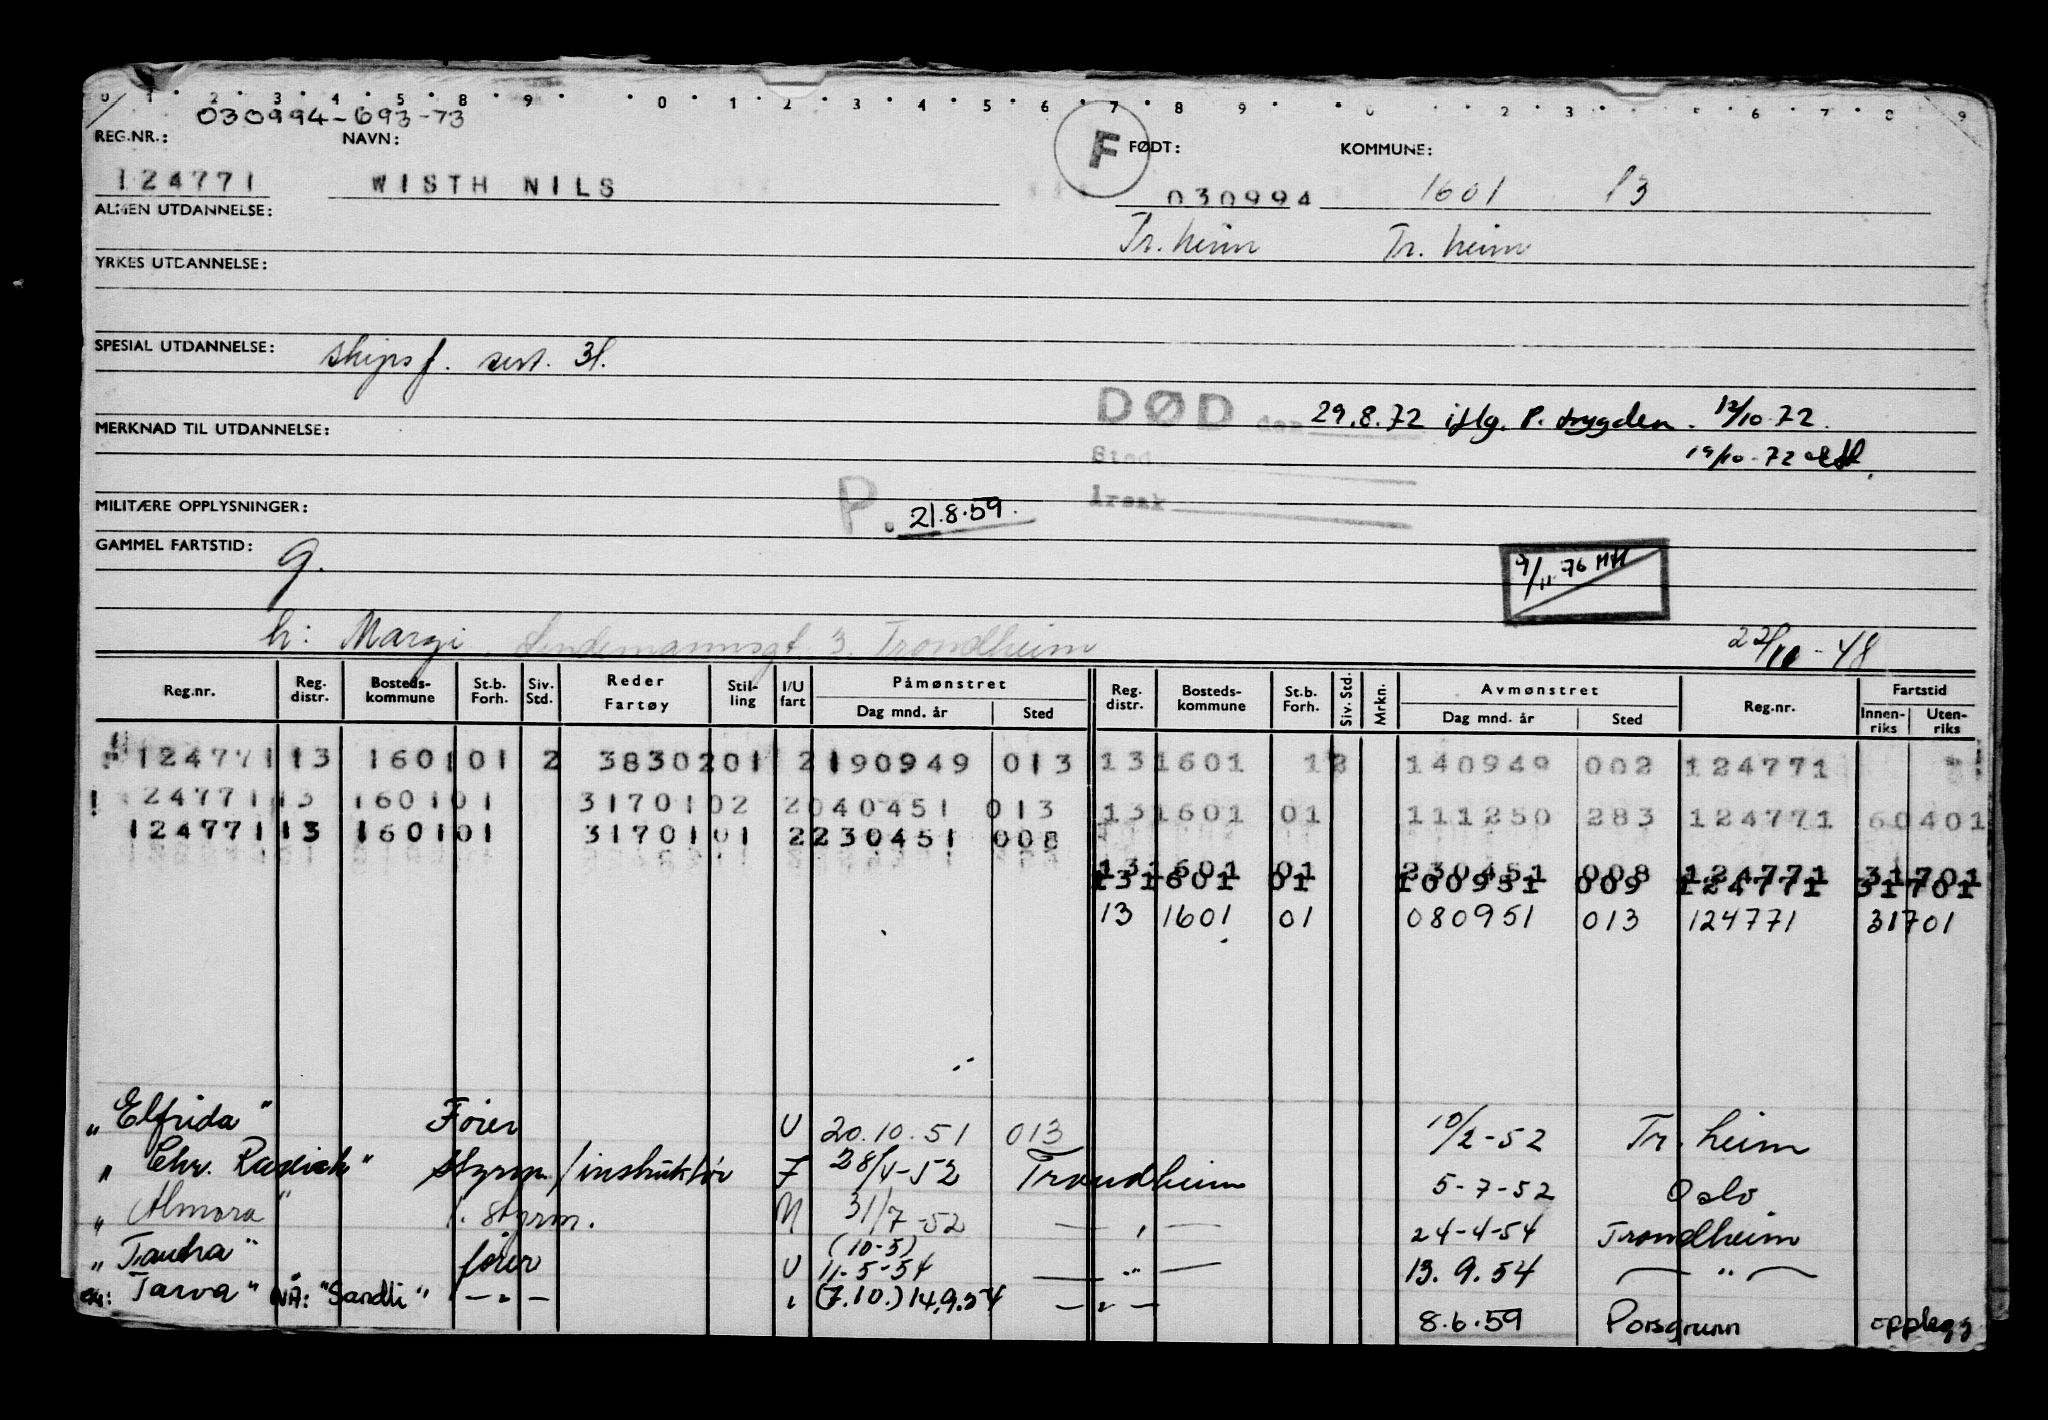 0 1 2 3 4 5 8 9 0 1 2 3 4 5 6 7 8 9 0 2 3 6 7 8 9
030994-693-73
REG.NR.: NAVN: F FØDT: KOMMUNE:
124771 WISTH NILS 030994 1601 13
ALMEN UTDANNELSE: Tr.heim Tr.heim
YRKES UTDANNELSE:
SPESIAL UTDANNELSE: skipsf. sert. 31.
DØD den 29.8.72 iflg. P. trygden. 12/10.72.
MERKNAD TIL UTDANNELSE:
Sted 19/10-72
MILITÆRE OPPLYSNINGER: P. 21.8.59. Årsak
GAMMEL FARTSTID: g.
9/11 76 MH
h: Margi Lindemannsgt. 3. Trondheim 22/11-48
Reg.nr. Reg. distr. Bosteds-kommune St.b. Forh. Siv. Std. Reder Fartøy Stil-ling I/U fart Påmønstret Dag mnd. år Sted Reg. distr. Bosteds-kommune St.b. Forh. Siv. Std. Mrkn. Avmønstret Dag mnd. år Sted Reg.nr. Fartstid Innen-riks Uten-riks
124771 13 1601 01 2 38302 01 2 190949 013 13 1601 1 2 140949 002 124771
124771 13 1601 01 31701 02 2 040451 013 13 1601 01 111250 283 124771 60401
124771 13 1601 01 31701 01 2 230451 008
13 1601 01 230451 008 124771 31701
13 1601 01 100951 009 124771 31701
13 1601 01 080951 013 124771 31701
"Elfrida" Fører U 20.10.51 013 10/2-52 Tr.heim
"Chr. Radich" styrm/instruktør F 28/4-52 Trondheim 5-7-52 Oslo
"Almora" 1. styrm. N 31/7-52 — " — 24-4-54 Trondheim
"Tautra" fører U (10-5) 11-5-54 — " — 13.9.54 — " —
ex: "Tarva" NÅ: "Sandli" — " — " (7.10.) 14.9.54 — " — 8.6.59 Porsgrunn opplegg